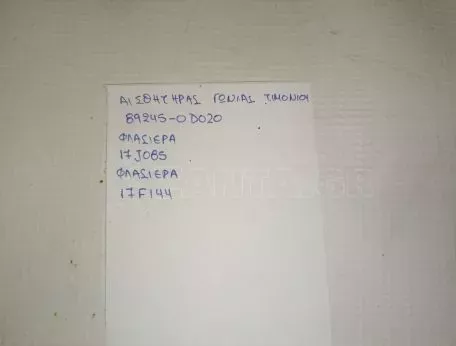 ΑΙΣΘΗΤΗΡΑΣ ΓΩΝΙΑΣ ΤΙΜΟΝΙΟΥ
89245-0D020
ΦΛΑΣΙΕΡΑ
17J085
ΦΛΑΣΙΕΡΑ
17F144